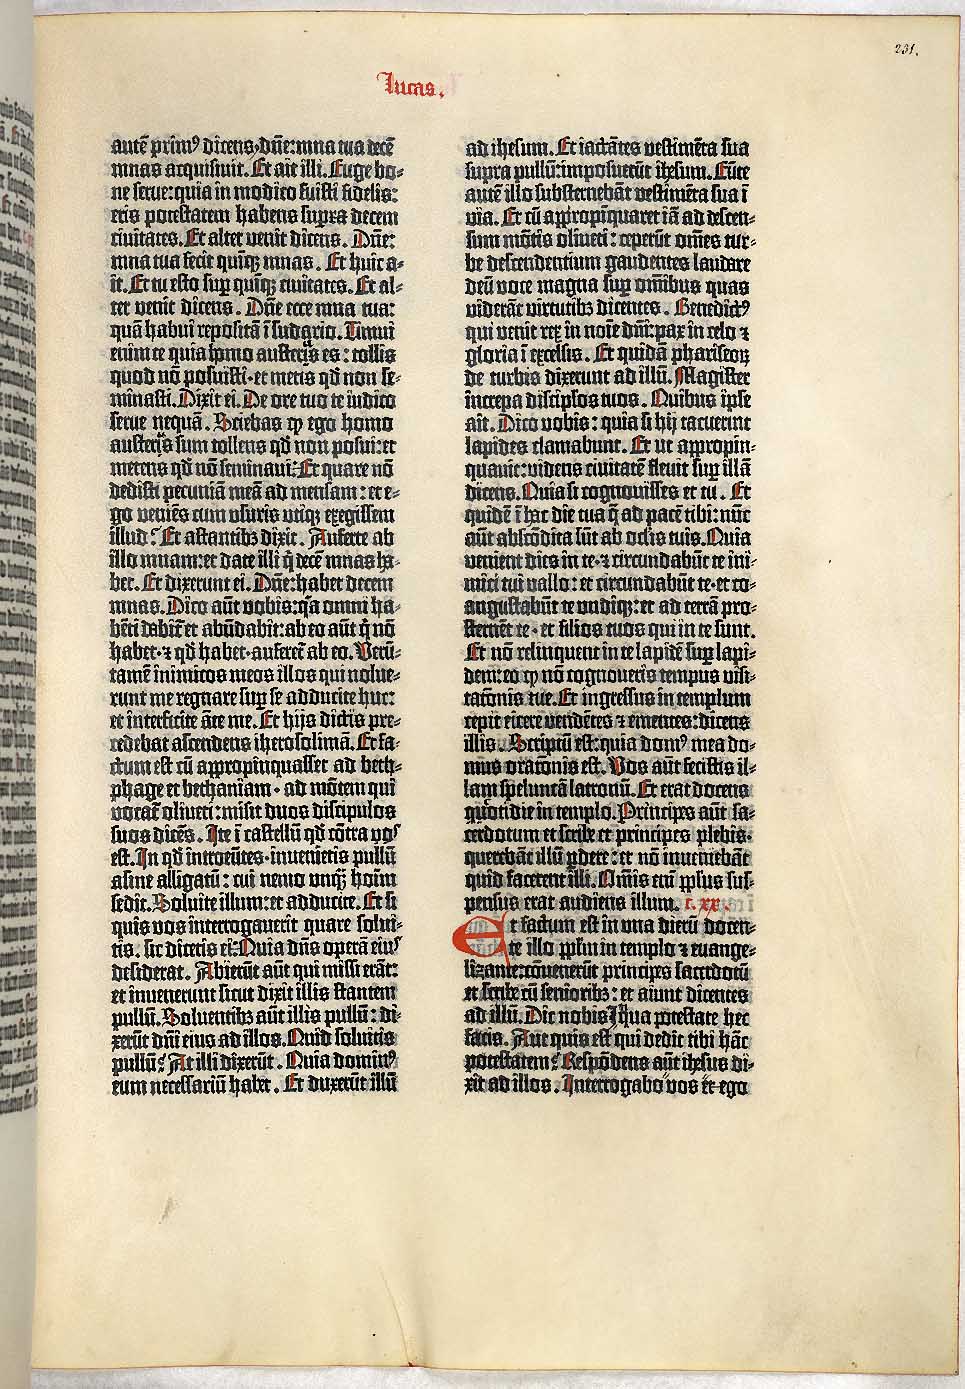 231.
Lucas.
autē prim⁹ dicens·dn̄e:mna tua decē
mnas acquisiuit. Et ait illi. Euge bo-
ne serue:quia in modico fuisti fidelis:
eris potestatem habens supra decem
ciuitates. Et alter venit dicens. Dn̄e:
mna tua fecit quinqꝫ mnas. Et huic a-
it. Et tu esto sup̲ quinqꝫ ciuitates. Et al-
ter venit dicens. Dn̄e ecce mna tua:
quā habui repositā ī sudario. Timui
enim te quia homo austerus es: tollis
quod nō posuisti·et metis qd̄ non se-
minasti. Dixit ei. De ore tuo te iudico
serue nequā. Sciebas ꝙ ego homo
austerus sum tollens qd̄ non posui:et
metens qd̄ nō seminaui: Et quare nō
dedisti pecuniā meā ad mensam: et e-
go veniēs cum vsuris vtiqꝫ exegissem
illud? Et astantibꝫ dixit. Auferte ab
illo mnam:et date illi q̄ decē mnas ha-
bet. Et dixerunt ei. Dn̄e: habet decem
mnas. Dico aūt vobis: q̄a omni ha-
bēti dabit̄ et abūdabit: ab eo aūt q̄ nō
habet·⁊ qd̄ habet·auferet̄ ab eo. Verū-
tamē inimicos meos illos qui nolue-
runt me regnare sup̲ se adducite huc:
et interficite āte me. Et hijs dictis pre-
cedebat ascendens iherosolimā. Et fa-
ctum est cū appropinquasset ad beth-
phage et bethaniam· ad mōtem qui
vocat̄ oliueti: misit duos discipulos
suos dicēs. Ite ī castellū qd̄ cōtra vos
est. In qd̄ introeūtes·inuenietis pullū
asine alligatū: cui nemo vnq̄ꝫ hoīm
sedit. Soluite illum: et adducite. Et si
quis vos interrogauerit quare solui-
tis. sic dicetis ei: Quia dn̄s operā eius
desiderat. Abierūt aūt qui missi erāt:
et inuenerunt sicut dixit illis stantem
pullū. Soluentibꝫ aūt illis pullū: di-
xerūt dn̄i eius ad illos. Quid soluitis
pullū? At illi dixerūt. Quia domin⁹
eum necessariū habet. Et duxerūt illū
ad ihesum. Et iactātes vestimēta sua
supra pullū:imposuerūt ihesum. Eūte
autē illo substernebāt vestimēta sua ī
via. Et cū appropīquaret iā ad descen-
sum mōtis oliueti: ceperūt om̄es tur-
be descendentium gaudentes laudare
deū voce magna sup̲ om̄ibus quas
viderāt virtutibꝫ dicentes. Benedict⁹
qui venit rex in noīe dn̄i: pax in celo ⁊
gloria ī excelsis. Et quidā phariseoꝝ
de turbis dixerunt ad illū. Magister
increpa discip̄los tuos. Quibus ip̄e
ait. Dico vobis: quia si hij tacuerint
lapides clamabunt. Et ut appropin-
quauit: videns ciuitatē fleuit sup̲ illā
dicens. Quia si cognouisses et tu. Et
quidē ī hac die tua q̄ ad pacē tibi: nūc
aūt abscōdita sūt ab oclis tuis. Quia
venient dies in te·⁊ circundabūt te ini-
mici tui vallo: et circundabūt te·et co-
angustabūt te vndiqꝫ: et ad terrā pro-
sternēt te· et filios tuos qui in te sunt.
Et nō relinquent in te lapidē sup̲ lapi-
dem: eo ꝙ nō cognoueris tempus visi-
tatōnis tue. Et ingressus in templum
cepit eicere vendētes ⁊ ementes: dicens
illis. Scriptū est: quia dom⁹ mea do-
mus oratōnis est. Vos aūt fecistis il-
lam speluncā latronū. Et erat docens
quotidie in templo. Principes aūt sa-
cerdotum et scribe et principes plebis·
querebāt illū p̲dere: et nō inueniebāt
quid facerent illi. Om̄is enī pp̄lus sus-
pensus erat audiens illum. c. xx.
Et factum est in vna dierū docen-
te illo pp̄lm in templo ⁊ euange-
lizante:cōuenerūt principes sacerdotū
et scribe cū senioribꝫ: et aiunt dicentes
ad illū. Dic nobis In qua potestate hec
facis. Aut quis est qui dedit tibi hāc
potestatem? Respōdens aūt ihesus di-
xit ad illos. Interrogabo vos et ego